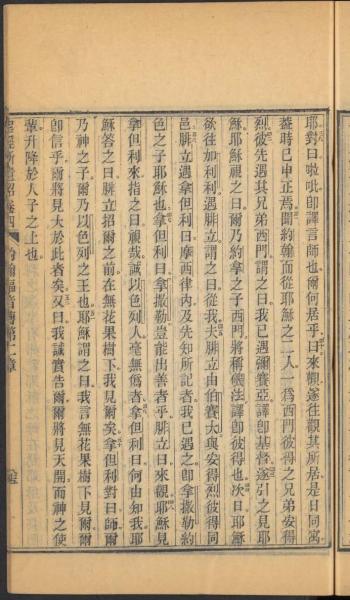 耶對曰啦吡卽譯言師也爾何居乎曰來觀遂往觀其所居是日同寓
葢時已申正焉聞約翰而從耶穌之二人一爲西門彼得之兄弟安得
烈彼先遇其兄弟西門謂之曰我已遇彌賽亞譯卽基督遂引之見耶
穌耶穌視之曰爾乃約拿之子西門將稱磯法譯卽彼得也次日耶穌
欲往加利利遇腓立謂之曰從我夫腓立由伯賽大與安得烈彼得同
邑腓立遇拿但利曰摩西律內及先知所記者我已遇之卽拿撒勒約
色之子耶穌也拿但利曰拿撒勒豈能出善者乎腓立曰來觀耶穌見
拿但利來指之曰視哉誠以色列人毫無僞者拿但利曰何由知我耶
穌答之曰腓立招爾之前在無花果樹下我見爾矣拿但利對曰師爾
乃神之子爾乃以色列之王也耶穌謂之曰我言無花果樹下見爾爾
卽信乎爾將見大於此者矣又曰我誠實告爾爾將見天開而神之使
輩升降於人子之上也
約翰福音傳第二章